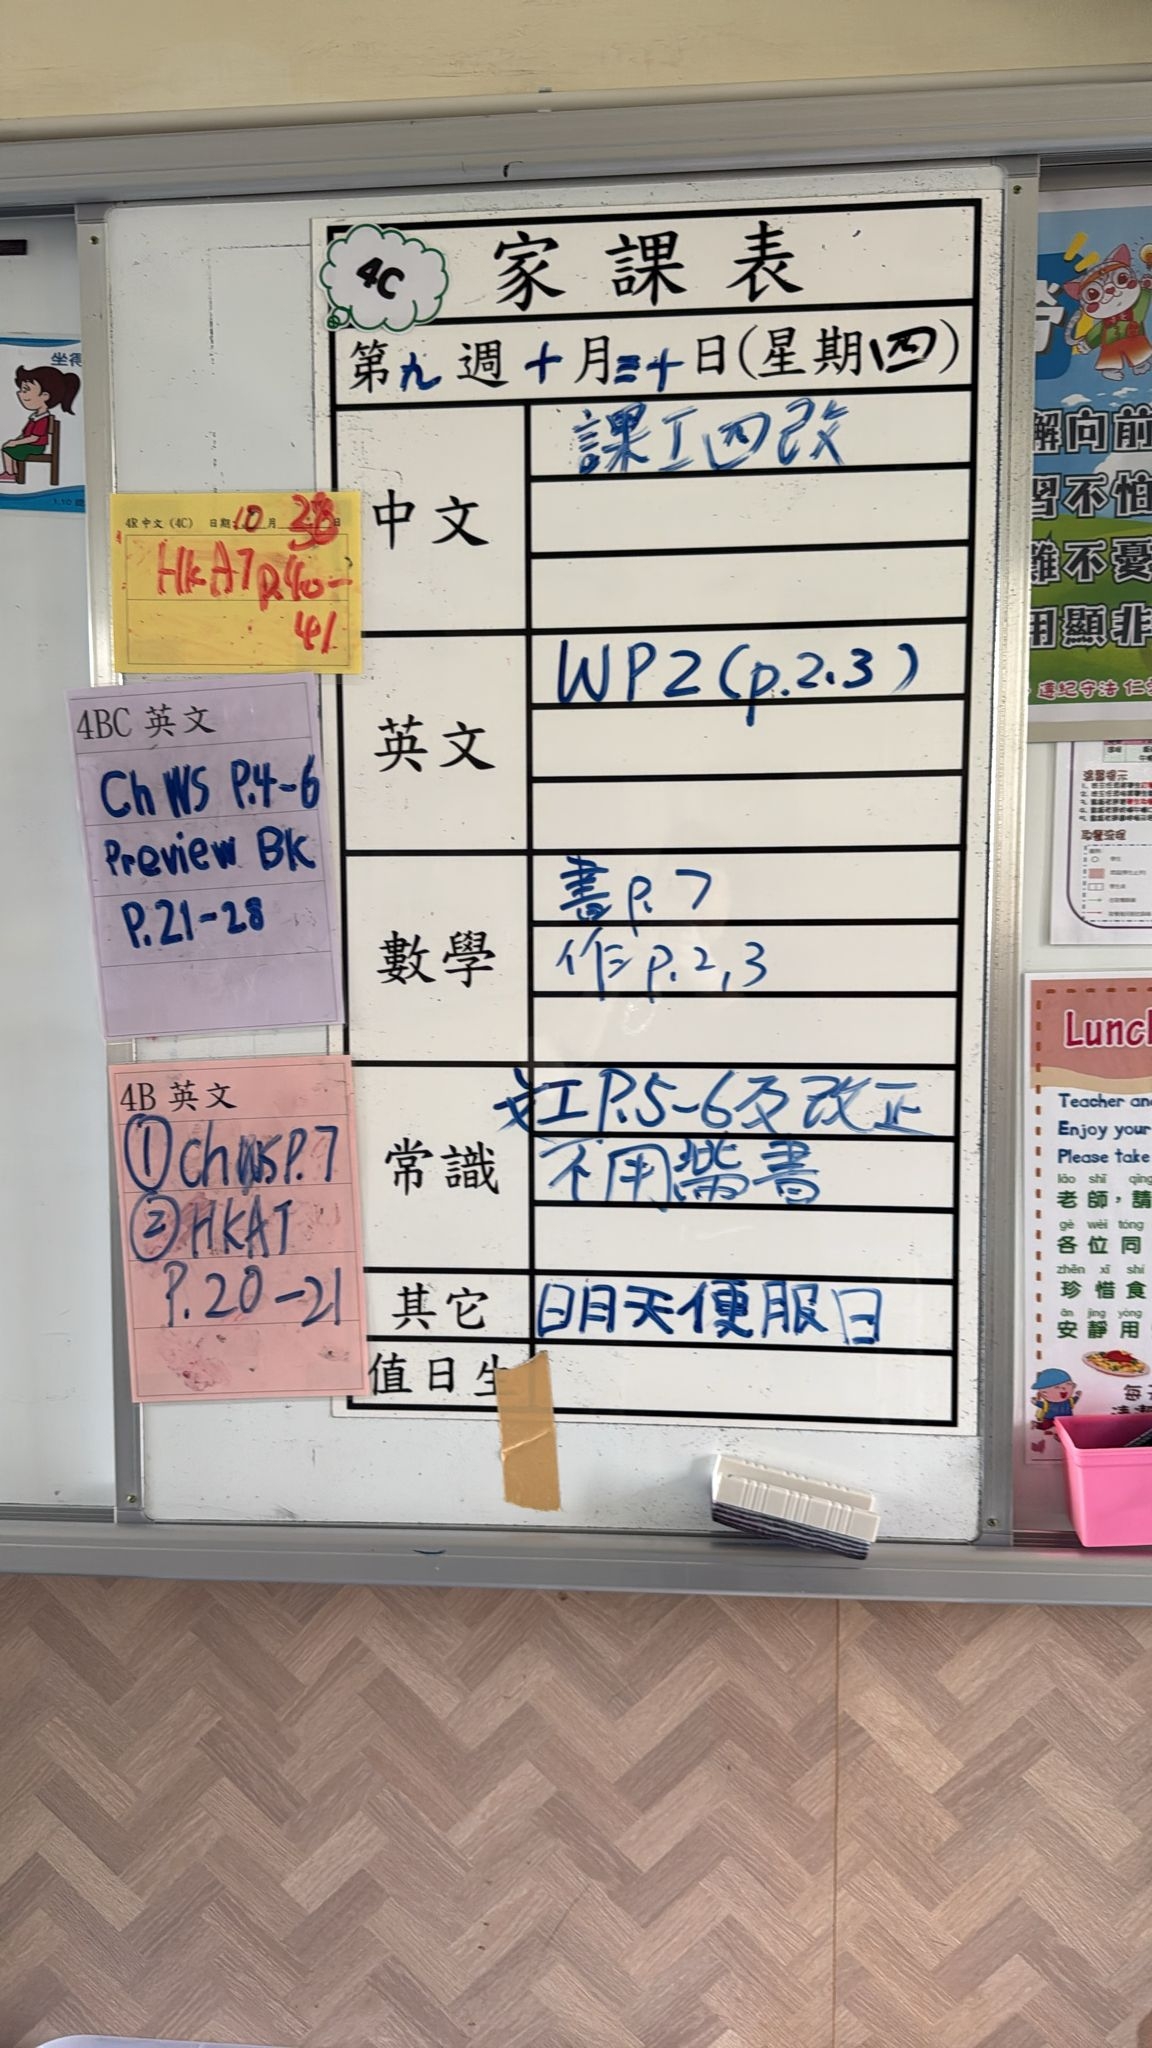 4C
家課表
第九週十月三十日(星期四)
中文
課工四改
英文
WP2(p.2.3)
數學
書p.7
作p.2,3
常識
工P.5-6及改正
不用帶書
其它
日月天便服日
值日生
4R中文(4C) 日期:10月
HKAT p.40-
41
4BC 英文
Ch WS P.4-6
Preview Bk
P.21-28
4B 英文
①Ch WS P.7
②HKAT
P.20-21
坐得
解向前
習不怕
難不憂
用顯非
遵紀守法 仁
溫馨提示
取餐流程
Lunch
Teacher and
Enjoy your
Please take
lǎo shī qǐng
老師，請
gè wèi tóng
各位同
zhēn xī shí
珍惜食
ān jìng yòng
安靜用
每